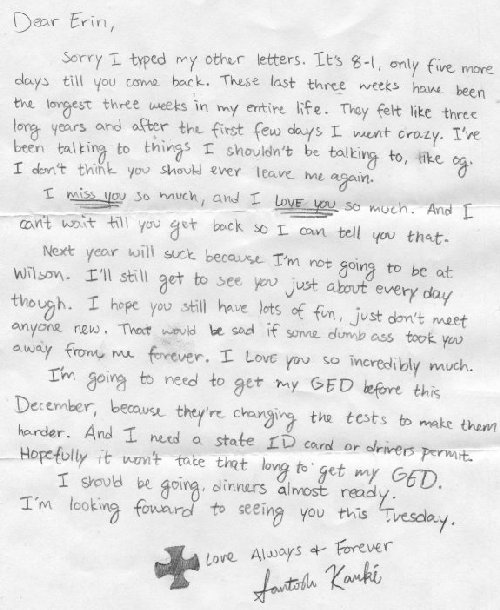 Dear Erin,
Sorry I typed my other letters. It's 8-1, only five more
days till you come back. These last three weeks have been
the longest three weeks in my entire life. They felt like three
long years and after the first few days I went crazy. I've
been talking to things I shouldn't be talking to, like og.
I don't think you should ever leave me again.
I miss you so much, and I LOVE you so much. And I
can't wait till you get back so I can tell you that.
Next year will suck because I'm not going to be at
Wilson. I'll still get to see you just about every day
though. I hope you still have lots of fun, just don't meet
anyone new. That would be sad if some dumb ass took you
away from me forever. I Love you so incredibly much.
I'm going to need to get my GED before this
December, because they're changing the tests to make them
harder. And I need a state ID card or drivers permit.
Hopefully it won't take that long to get my GED.
I should be going, dinners almost ready.
I'm looking foward to seeing you this Tuesday.
Love Always + Forever
Santosh Karki